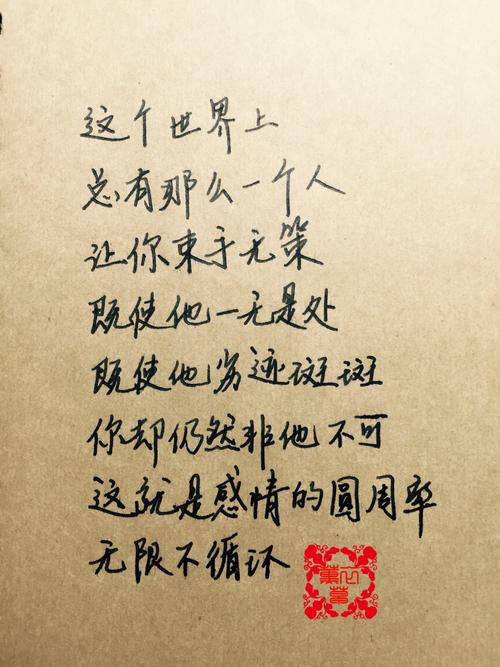 这个世界上
总有那么一个人
让你束手无策
既使他一无是处
既使他劣迹斑斑
你却仍然非他不可
这就是感情的圆周率
无限不循环